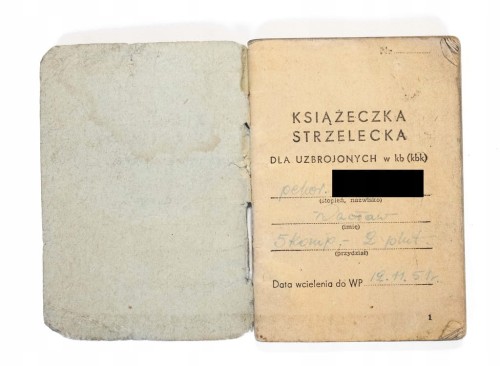 Nr
KSIĄŻECZKA
STRZELECKA
DLA UZBROJONYCH w kb (kbk)
(stopień, nazwisko)
(imię)
5 komp. - 2 plut
(przydział)
Data wcielenia do WP 12.11.51r.
1